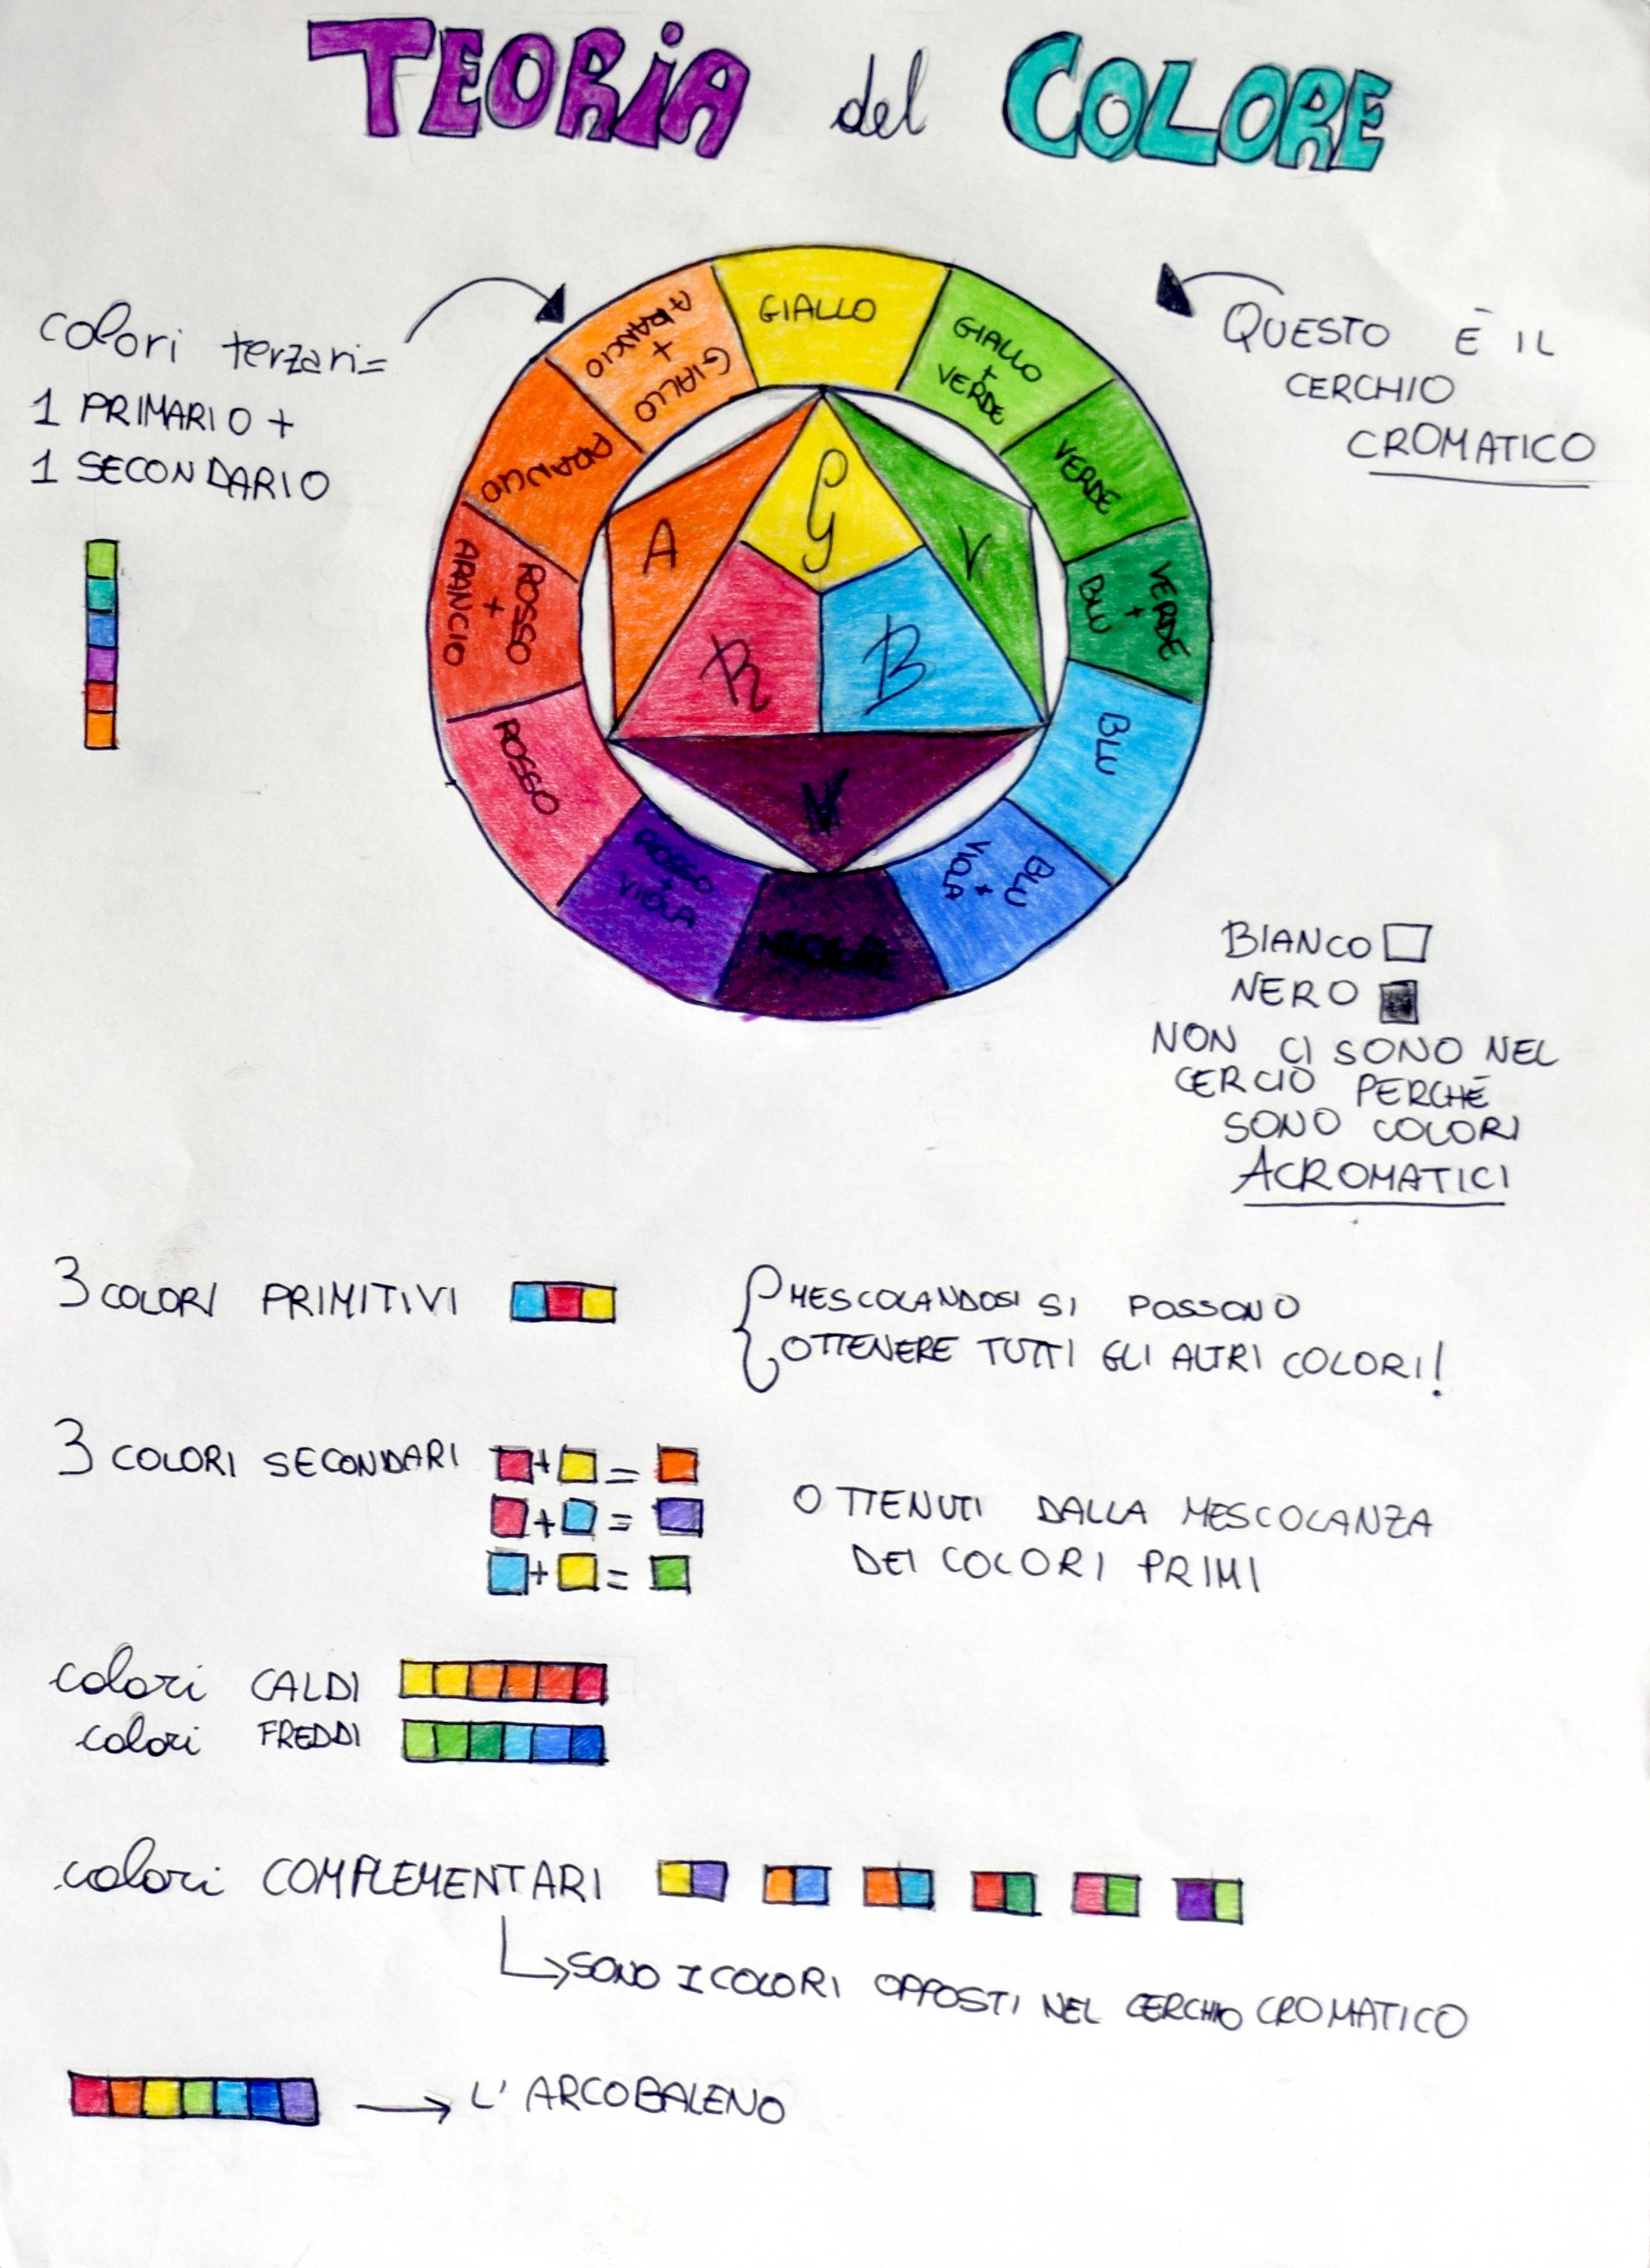 TEORIA del COLORE
colori terzari=
1 PRIMARIO +
1 SECONDARIO
QUESTO È IL
CERCHIO
CROMATICO
GIALLO
GIALLO
+
VERDE
VERDE
VERDE
+
BLU
BLU
BLU
+
VIOLA
ROSSO
+
VIOLA
ROSSO
ROSSO
+
ARANCIO
ARANCIO
ARANCIO
+
GIALLO
G
A
V
R
B
BIANCO
NERO
NON CI SONO NEL
CERCIO PERCHÉ
SONO COLORI
ACROMATICI
3 COLORI PRIMITIVI
MESCOLANDOSI SI POSSONO
OTTENERE TUTTI GLI ALTRI COLORI!
3 COLORI SECONDARI
+ =
+ =
+ =
OTTENUTI DALLA MESCOLANZA
DEI COLORI PRIMI
colori CALDI
colori FREDDI
colori COMPLEMENTARI
SONO I COLORI OPPOSTI NEL CERCHIO CROMATICO
L'ARCOBALENO